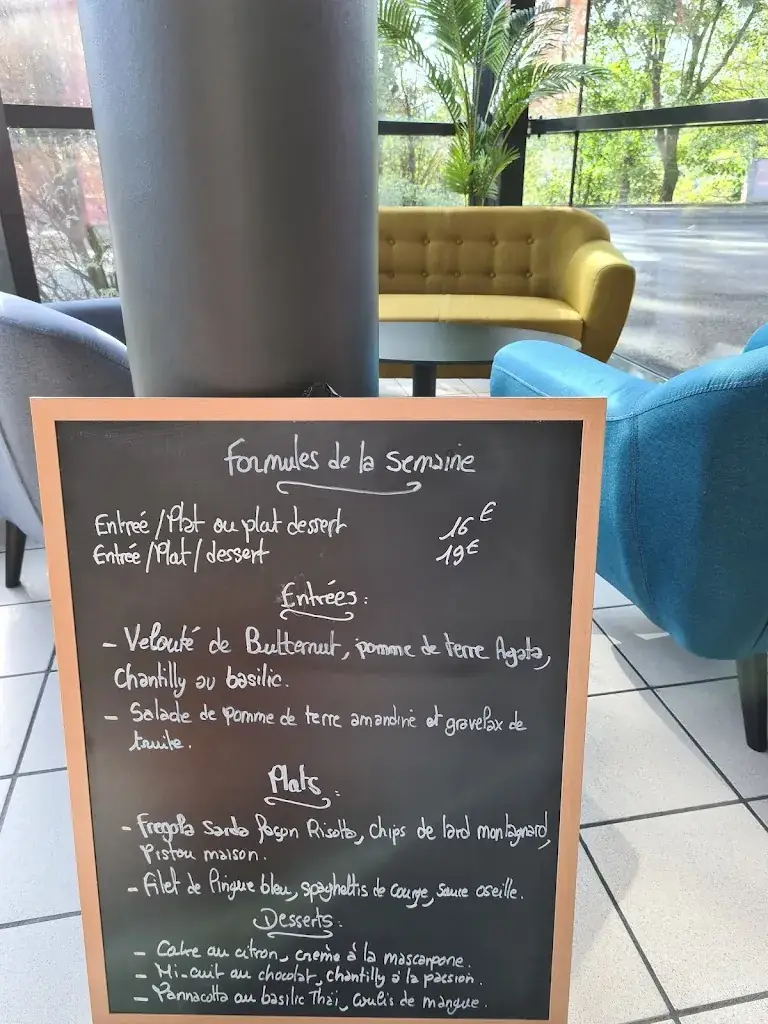 Formules de la semaine
Entrée/Plat ou plat dessert 16€
Entrée/Plat/dessert 19€
Entrées:
- Velouté de Butternut, pomme de terre Agata,
Chantilly au basilic.
- Salade de pomme de terre amandine et gravelax de
truite.
Plats:
- Fregola Sarda façon Risotto, chips de lard montagnard,
Pistou maison.
- Filet de Lingue bleu, spaghettis de courge, sauce oseille.
Desserts:
- Cake au citron, crème à la mascarpone.
- Mi-cuit au chocolat, chantilly à la passion.
- Pannacotta au basilic Thaï, Coulis de mangue.